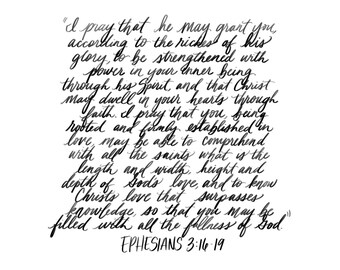 "I pray that he may grant you,
according to the riches of his
glory, to be strengthened with
power in your inner being
through his Spirit, and that Christ
may dwell in your hearts through
faith. I pray that you, being
rooted and firmly established in
love, may be able to comprehend
with all the saints what is the
length and width, height and
depth of Gods love, and to know
Christs love that surpasses
knowledge, so that you may be
filled with all the fullness of God."
EPHESIANS 3:16-19